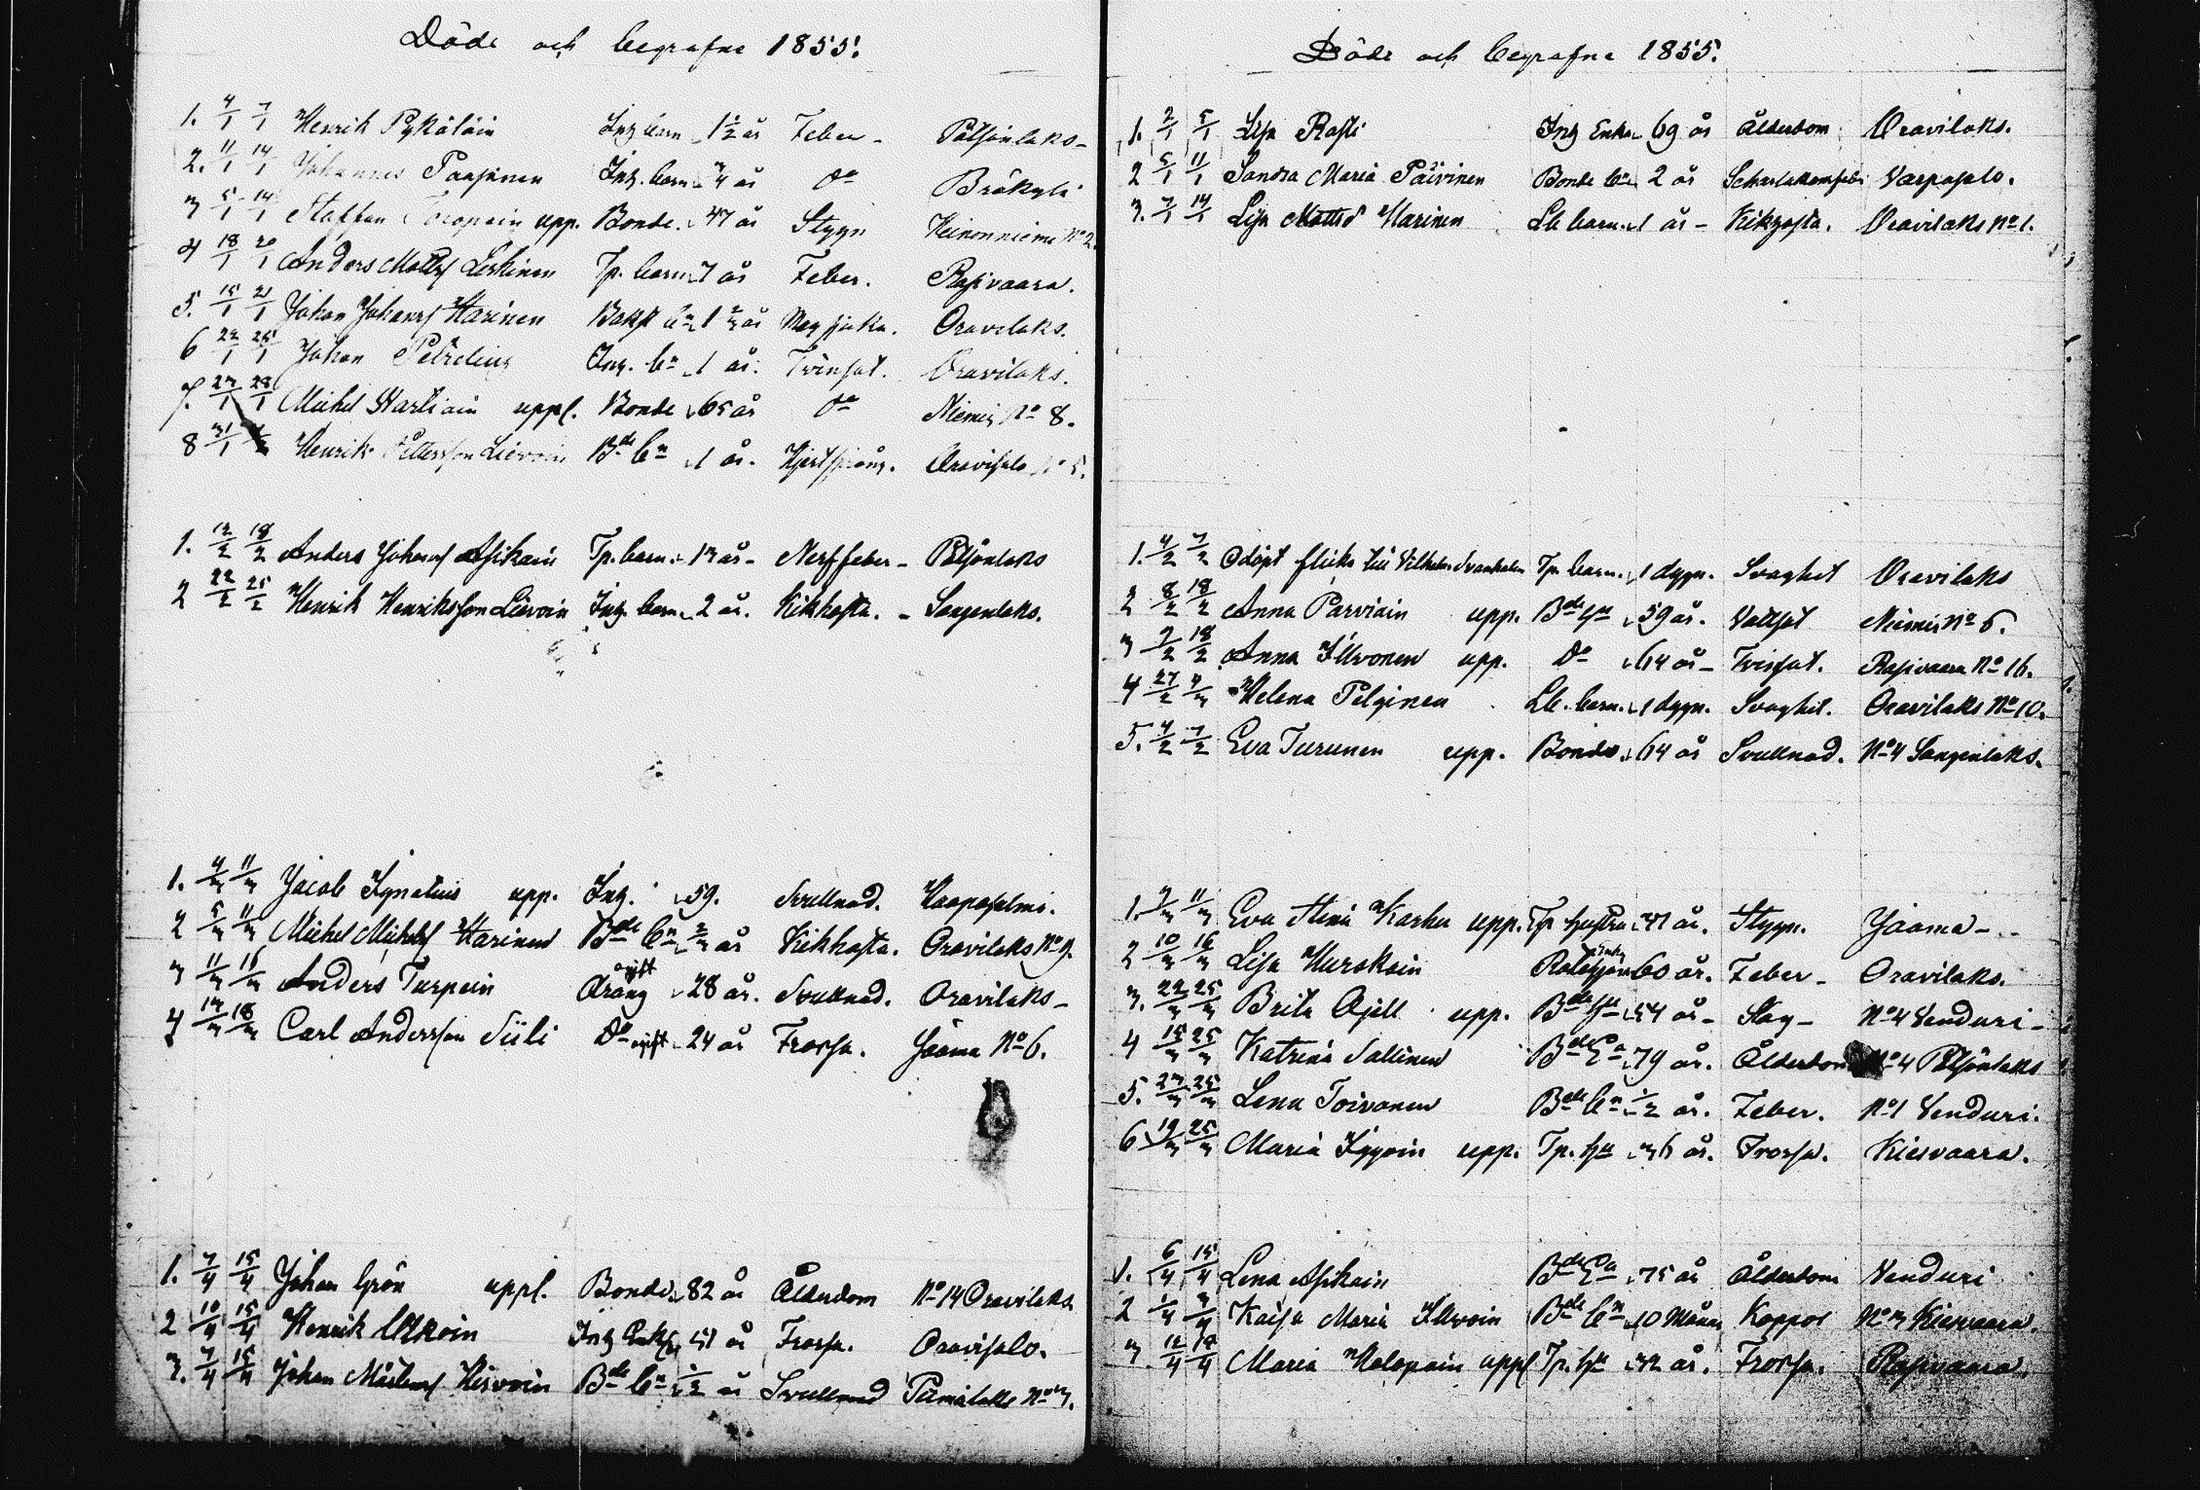 Döde och begrafne 1855.
1. 4/1 7/1 Henrik Pykäläin Inh. barn 1 1/2 år Feber - Potsönlaks -
2. 11/1 14/1 Johannes Paasonen Inh. barn 3/4 år Do Bråkylä
3 5/1 14/1 Staffan Toropain upp. Bonde. 47 år Stygn Heinonniemi No 2.
4 18/1 20/1 Anders Mattss Leskinen Tp. barn 7 år Feber. Rasivaara.
5. 15/1 21/1 Johan Johanss Harinen 1 2/3 år Magsjuka. Oravilaks.
6 22/1 25/1 Johan Petrelius Inh. bn 1 år. Tvinsot. Oravilaks.
7. 27/1 28/1 Michel Martiain uppl. Bonde 65 år Do Niemis No 8.
8 31/1 Henrik Pettersson Lievoin Bde bn 1 år. Hjertsprång. Oravisalo No 5.
1. 13/2 18/2 Anders Johanss Asikain Tp. barn. 13 år - Nerffeber - Potsönlaks
2 22/2 25/2 Henrik Henriksson Lievoin Inh. barn 2 år. Kikhosta. - Sangenlaks.
1. 4/3 11/3 Jacob Ignatius upp. Inh. 59. Svullnad. Haapasalmi.
2 5/3 11/3 Michel Michelss Harinen Bde bn 2/3 år Kikhosta. Oravilaks No 9.
3 11/3 16/3 Anders Turpein Dräng gift 28 år. Svullnad. Oravilaks -
4 14/3 18/3 Carl Andersson Siili Do gift 24 år Frossa. Jaama No 6.
1. 7/4 15/4 Johan Grön uppl. Bonde 82 år Ålderdom No 14 Oravilaks
2 10/4 15/4 Henrik Utkoin Inh Enkl. 51 år Frossa. Oravisalo.
3. 7/4 15/4 Johan Hirvoin Bde bn 1/2 år Svullnad No 3.
Döde och begrafne 1855.
1. 2/1 5/1 Lisa Rasti Inh Enka 69 år Ålderdom Oravilaks.
2 5/1 11/1 Sandra Maria Päivinen Bonde bn 2 år Scharlakansfeber Varpasalo.
3. 7/1 14/1 Lisa Mattsd Harinen Lb barn. 1 år - Kikhosta. Oravilaks No 1.
1. 4/2 7/2 Odöpt flicka till Vilhelm Svanholm Tp. barn. 1 dygn. Svaghet Oravilaks
2 8/2 18/2 Anna Parviain upp. Bde Hu 59 år. Vattsot Niemis No 6.
3 9/2 18/2 Anna Ilvonen upp. Do 64 år - Tvinsot. Rasivaara No 16.
4 27/2 4/3 Helena Pelginen Lb. barn. 1 dygn. Svaghet. Oravilaks No 10.
5. 4/2 7/2 Eva Turunen upp. Bonde 64 år Svullnad. No 4 Sangenlaks.
1. 7/3 11/3 Eva Stina Karhu upp. Tp hustru 41 år. Stygn. Jaama -
2 10/3 16/3 Lisa Hurskain 60 år. Feber - Oravilaks.
3. 22/3 25/3 Brita Ojell upp. Bde Hu 54 år - Slag - No 4 Venduri -
4 15/3 25/3 Katrina Sallinen Bde Ea 79 år. Ålderdom No 4 Potsönlaks
5. 23/3 25/3 Lena Toivonen Bde bn 1/2 år. Feber. No 1 Venduri.
6 19/3 25/3 Maria Iggoin upp. Tp. Hu 36 år. Frossa. Kiesvaara.
1. 6/4 15/4 Lena Asikain Bde Ea 75 år Ålderdom Venduri
2 1/4 9/4 Kaisa Maria Ilvoin Bde bn 10 Mån Koppor No 3 Kiesvaara.
3 12/4 Maria Holopain uppl Tp. Hu 32 år. Frossa. Rasivaara.